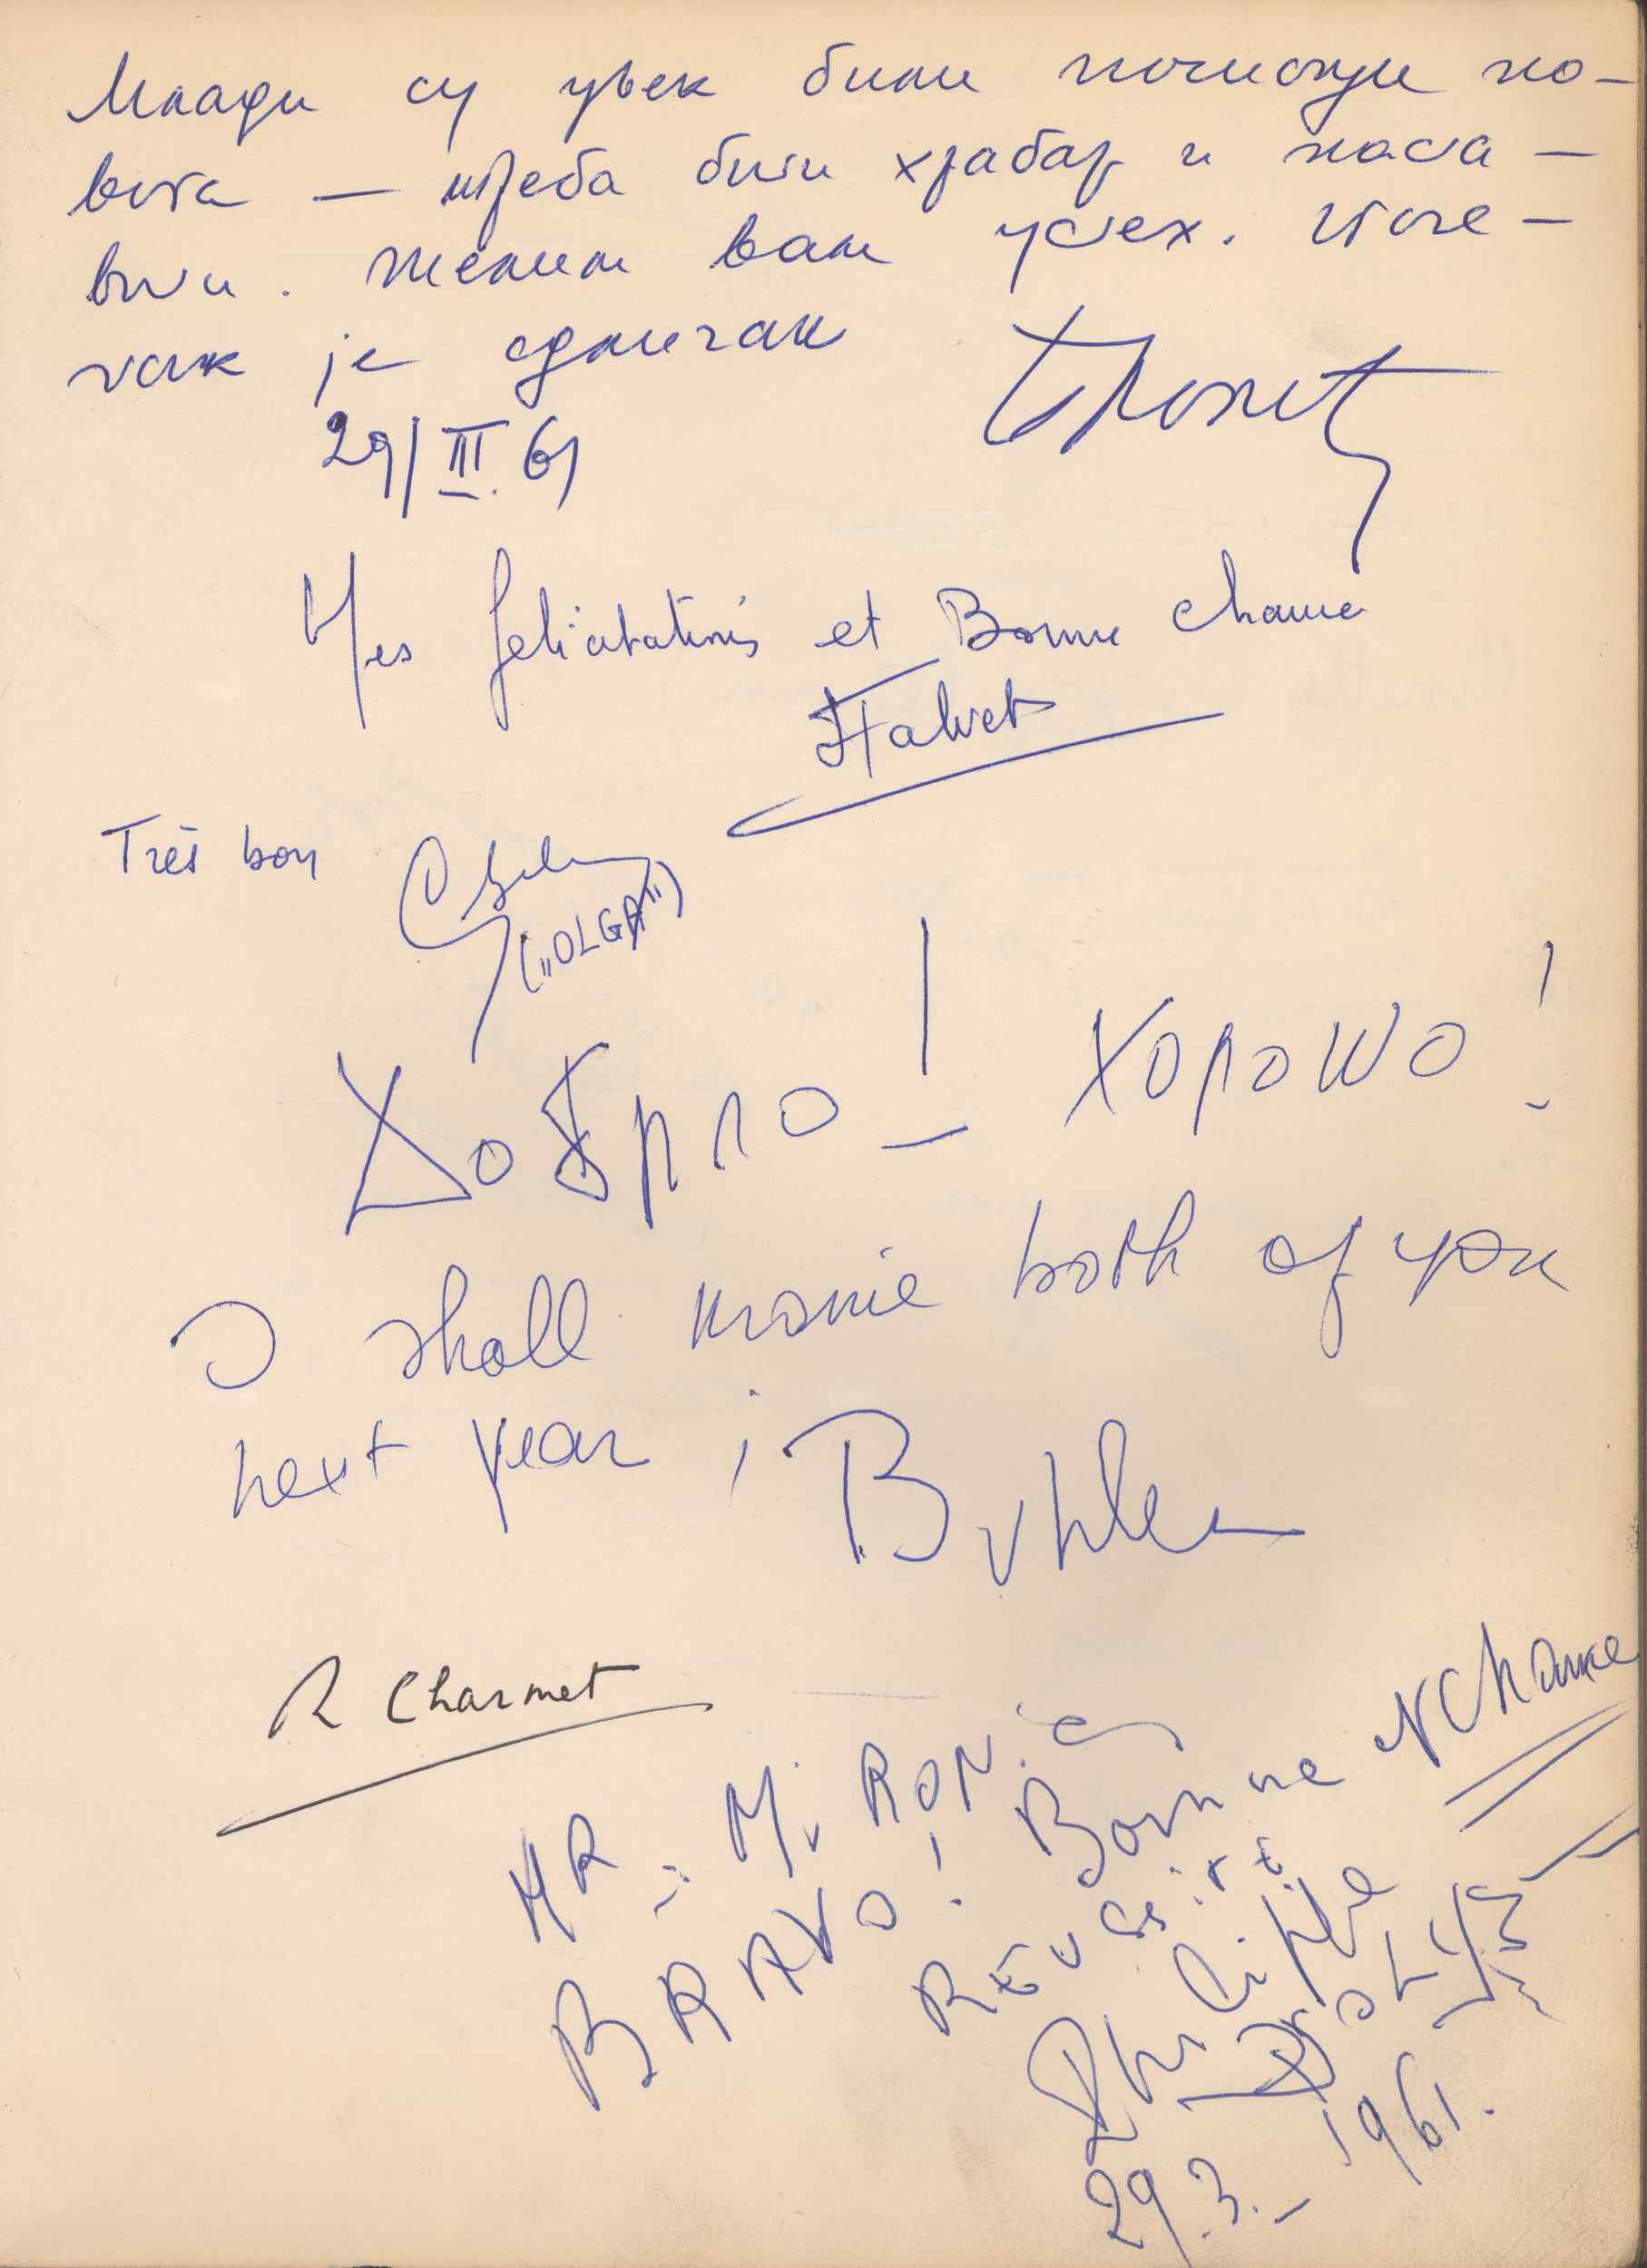 Млади су увек били почетци но-
вога — треба бити храбар и наста-
вити. Желим вам успех. Поче-
так је одличан
29/III. 61
Mes felicitations et Bonne chance
Très bon
("OLGA")
ДОБРЛО! ХОРОШО!
I shall both of you
next year,
R Charmet
BRAVO! Bonne Chance
Réussite
Philippe
29.3. 1961.